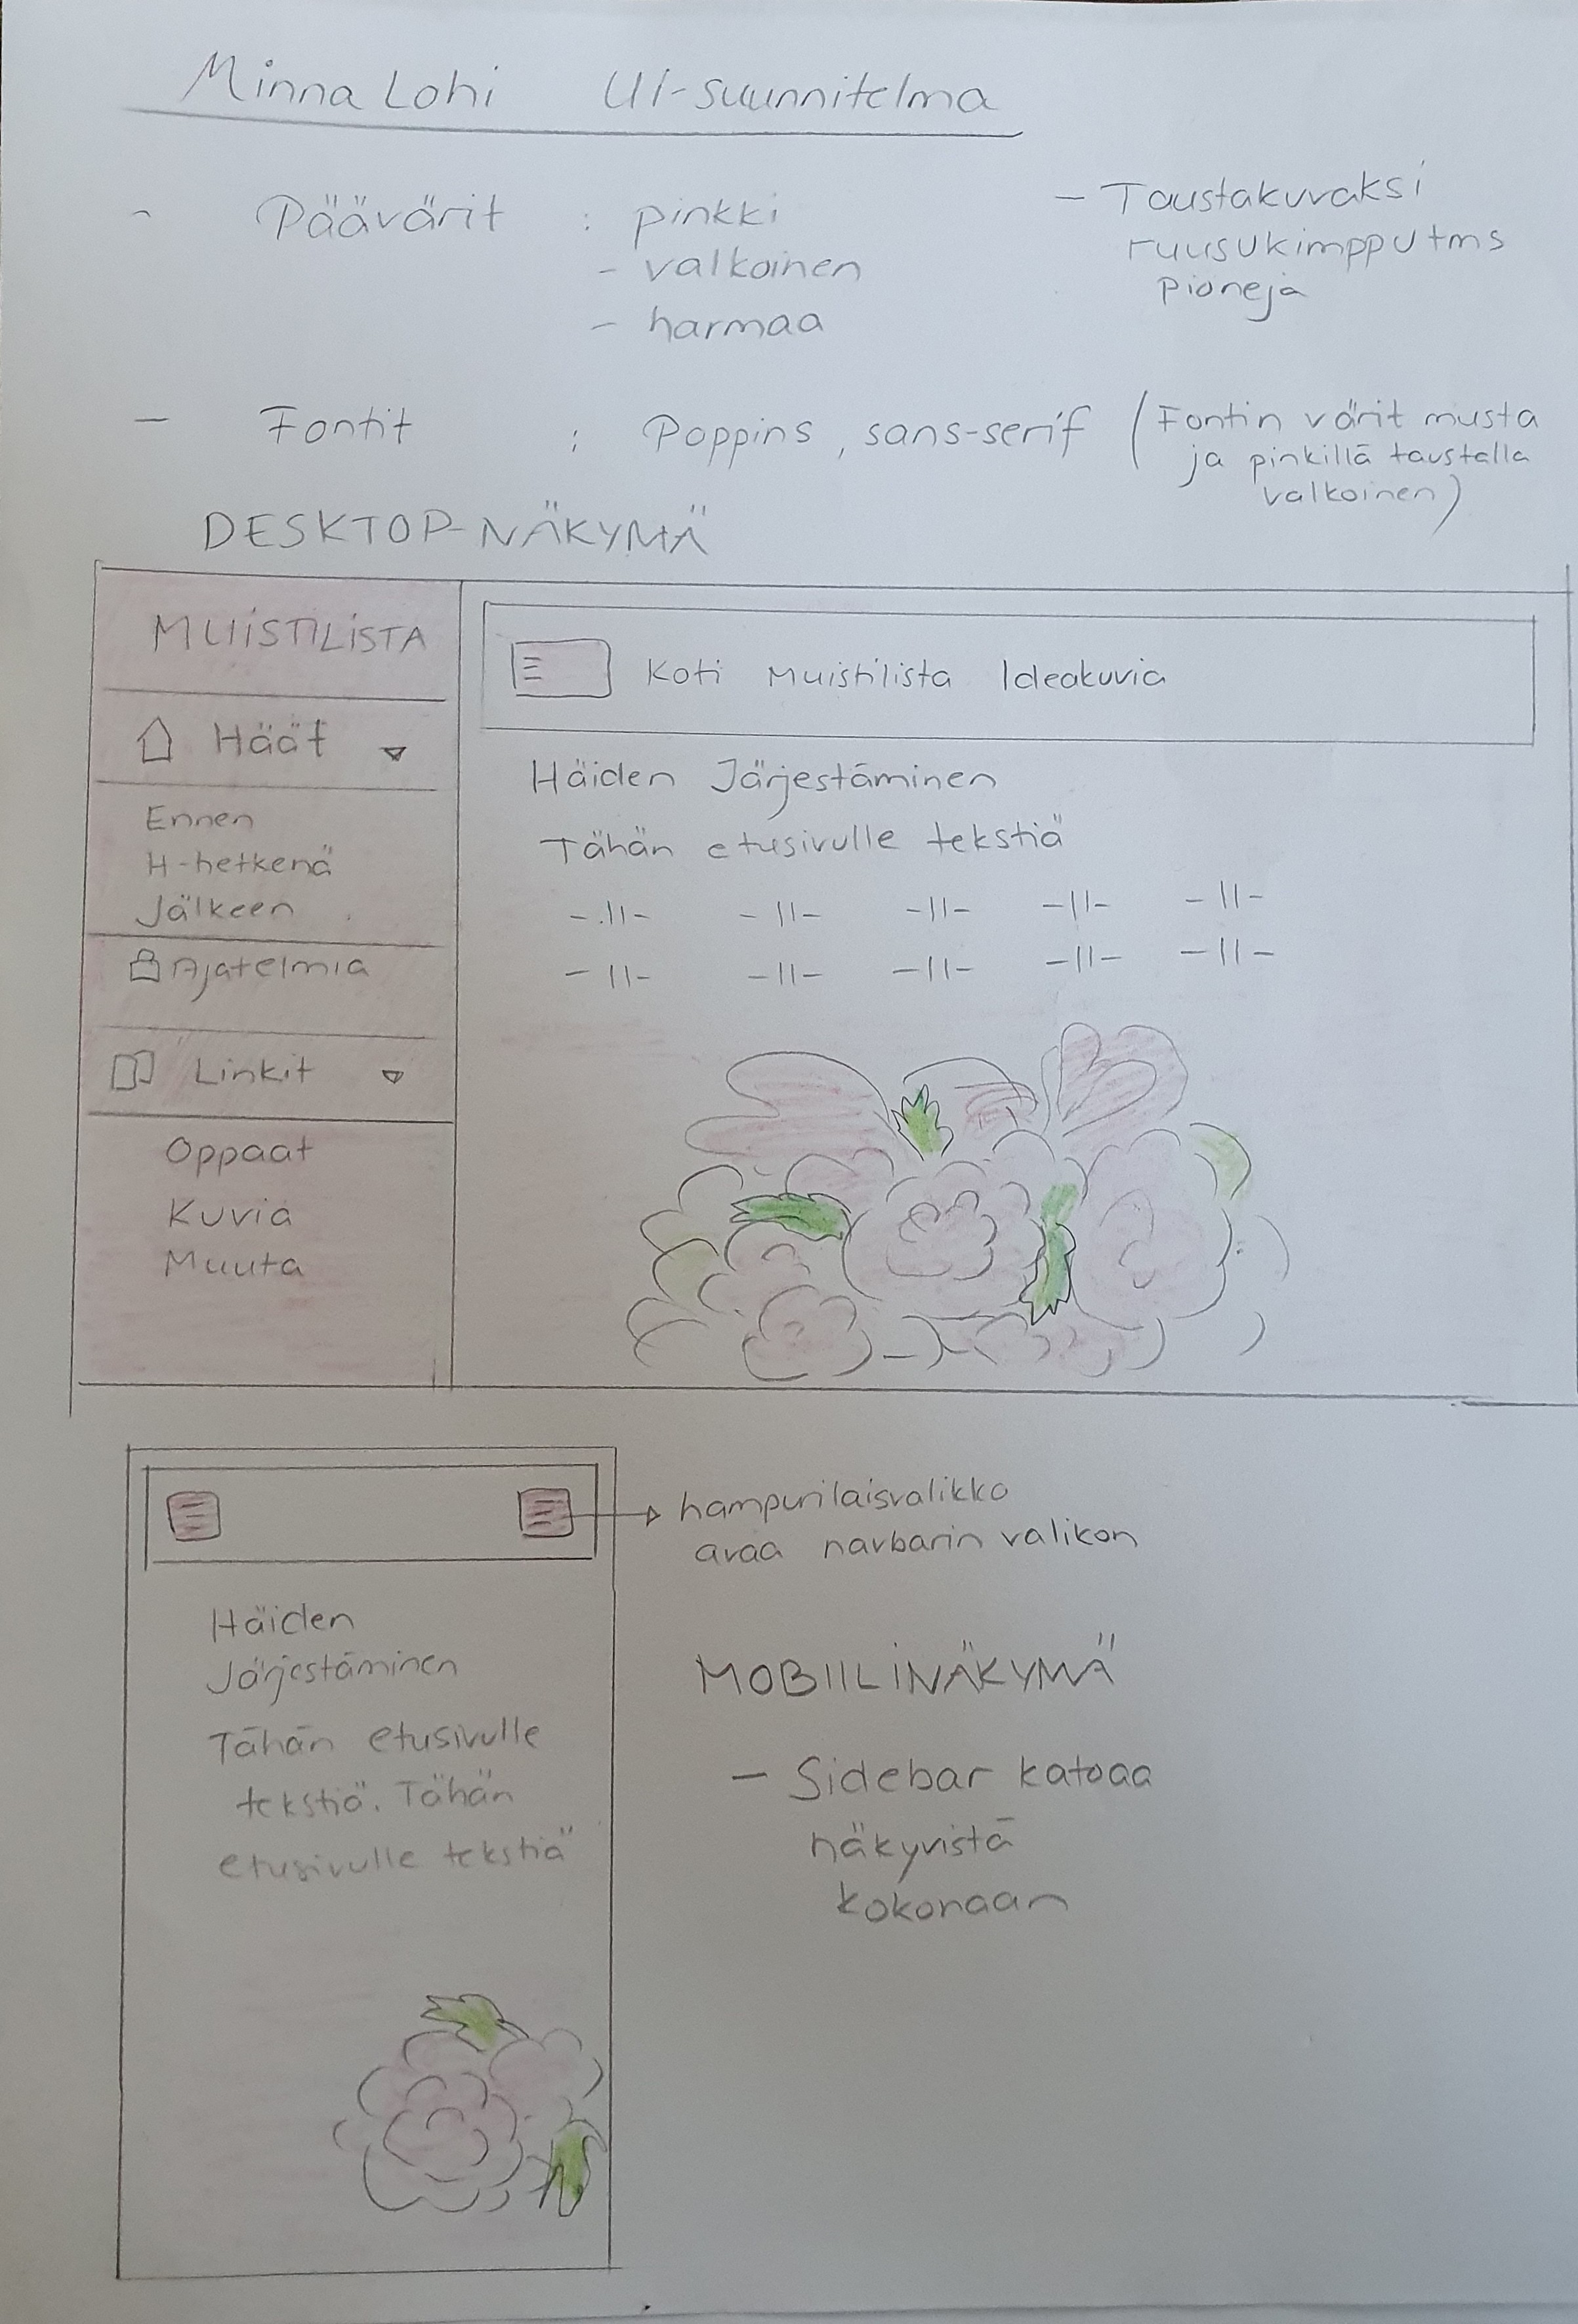 Minna Lohi UI-suunnitelma
- Päävärit : pinkki
- valkoinen
- harmaa
- Taustakuvaksi
ruusukimppu tms
pioneja
- Fontit : Poppins, sans-serif (Fontin värit musta
ja pinkillä taustalla
valkoinen)
DESKTOP-NÄKYMÄ
MUISTILISTA
Häät
Ennen
H-hetkenä
Jälkeen
Ajatelmia
Linkit
Oppaat
Kuvia
Muuta
Koti Muistilista Ideakuvia
Häiden Järjestäminen
Tähän etusivulle tekstiä
-||- -||- -||- -||- -||-
-||- -||- -||- -||- -||-
hampurilaisvalikko
avaa navbarin valikon
Häiden
Järjestäminen
Tähän etusivulle
tekstiä. Tähän
etusivulle tekstiä
MOBIILINÄKYMÄ
- Sidebar katoaa
näkyvistä
kokonaan